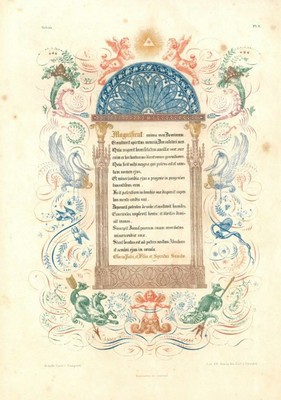 Magnificat anima mea Dominum
Et exultavit spiritus meus in Deo salutari meo
Quia respexit humilitatem ancillæ suæ ecce
enim ex hoc beatam me dicent omnes generationes
Quia fecit mihi magna qui potens est et sanc-
tum nomen ejus.
Et misericordia ejus a progenie in progenies
timentibus eum
Fecit potentiam in brachio suo dispersit super-
bos mente cordis sui.
Deposuit potentes de sede et exaltavit humiles
Esurientes implevit bonis: et divites dimi-
sit inanes.
Suscepit Israel puerum suum recordatus
misericordiæ suæ.
Sicut locutus est ad patres nostros, Abraham
et semini ejus in sæcula.
Gloria Patri, et Filio, et Spiritui Sancto